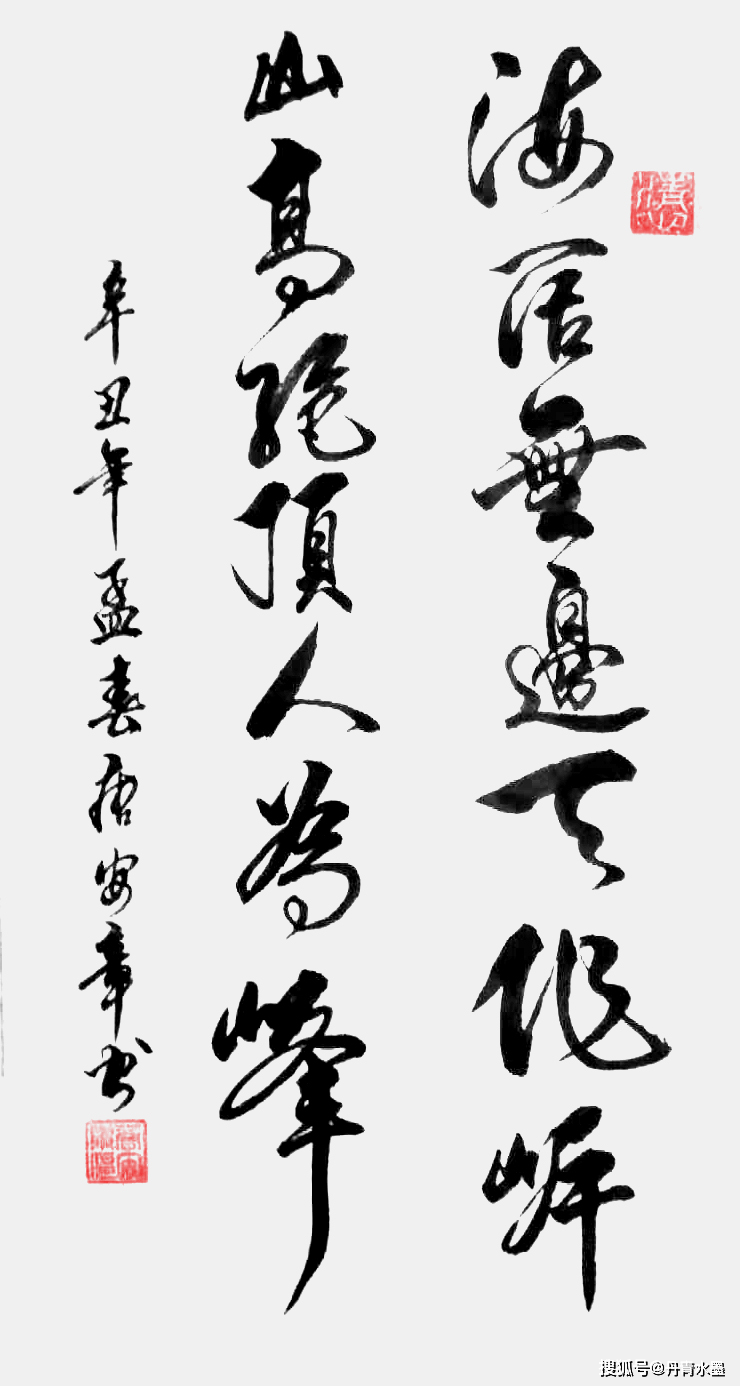 海闊無邊天作岸
山高絶頂人為峰
辛丑年孟春唐安章书
搜狐号@丹青水墨